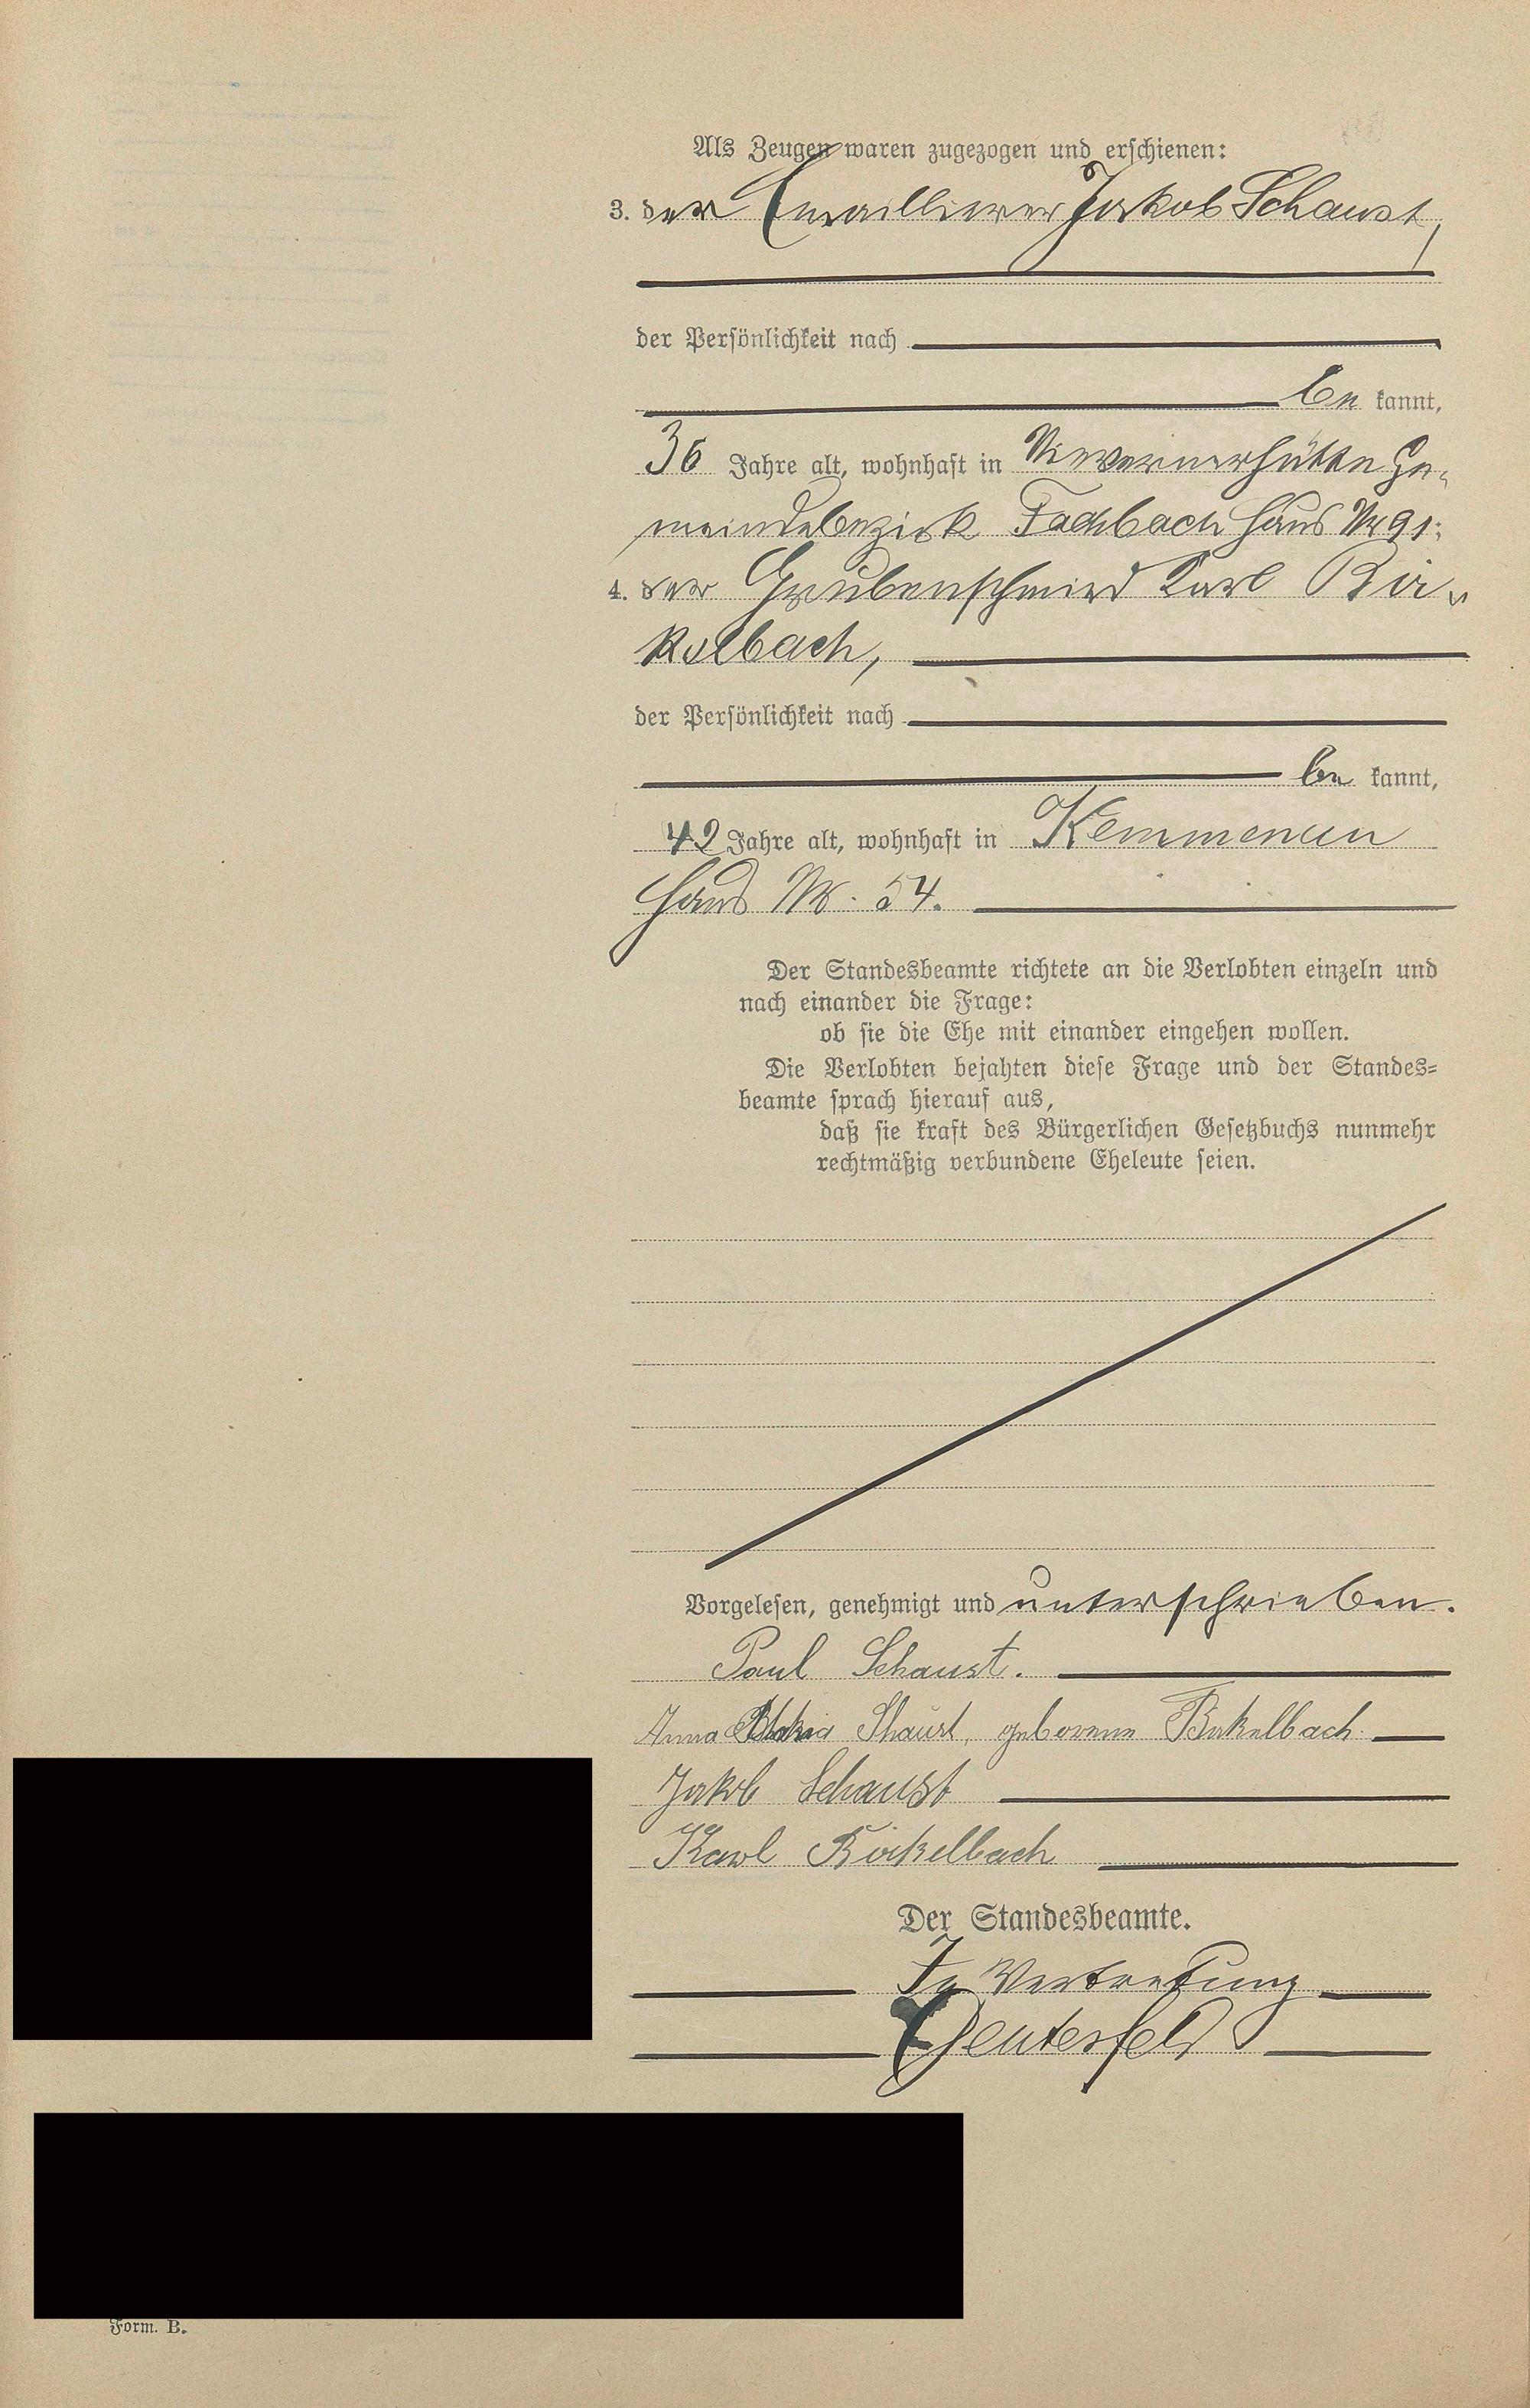 Als Zeugen waren zugezogen und erschienen:
3. der Emaillierer Jakob Schaust,
der Persönlichkeit nach
be kannt,
36 Jahre alt, wohnhaft in Nievernerhütte Ge-
meindebezirk Fachbach Haus Nr 91;
4. der Grubenschmied Karl Bir-
kelbach,
der Persönlichkeit nach
be kannt,
42 Jahre alt, wohnhaft in Kemmenau
Haus Nr. 54.
Der Standesbeamte richtete an die Verlobten einzeln und
nach einander die Frage:
ob sie die Ehe mit einander eingehen wollen.
Die Verlobten bejahten diese Frage und der Standes-
beamte sprach hierauf aus,
daß sie kraft des Bürgerlichen Gesetzbuchs nunmehr
rechtmäßig verbundene Eheleute seien.
Vorgelesen, genehmigt und unterschrieben.
Paul Schaust.
Anna Maria Schaust, geborene Birkelbach.
Jakob Schaust
Karl Birkelbach
Der Standesbeamte.
In Vertretung
Form. B.